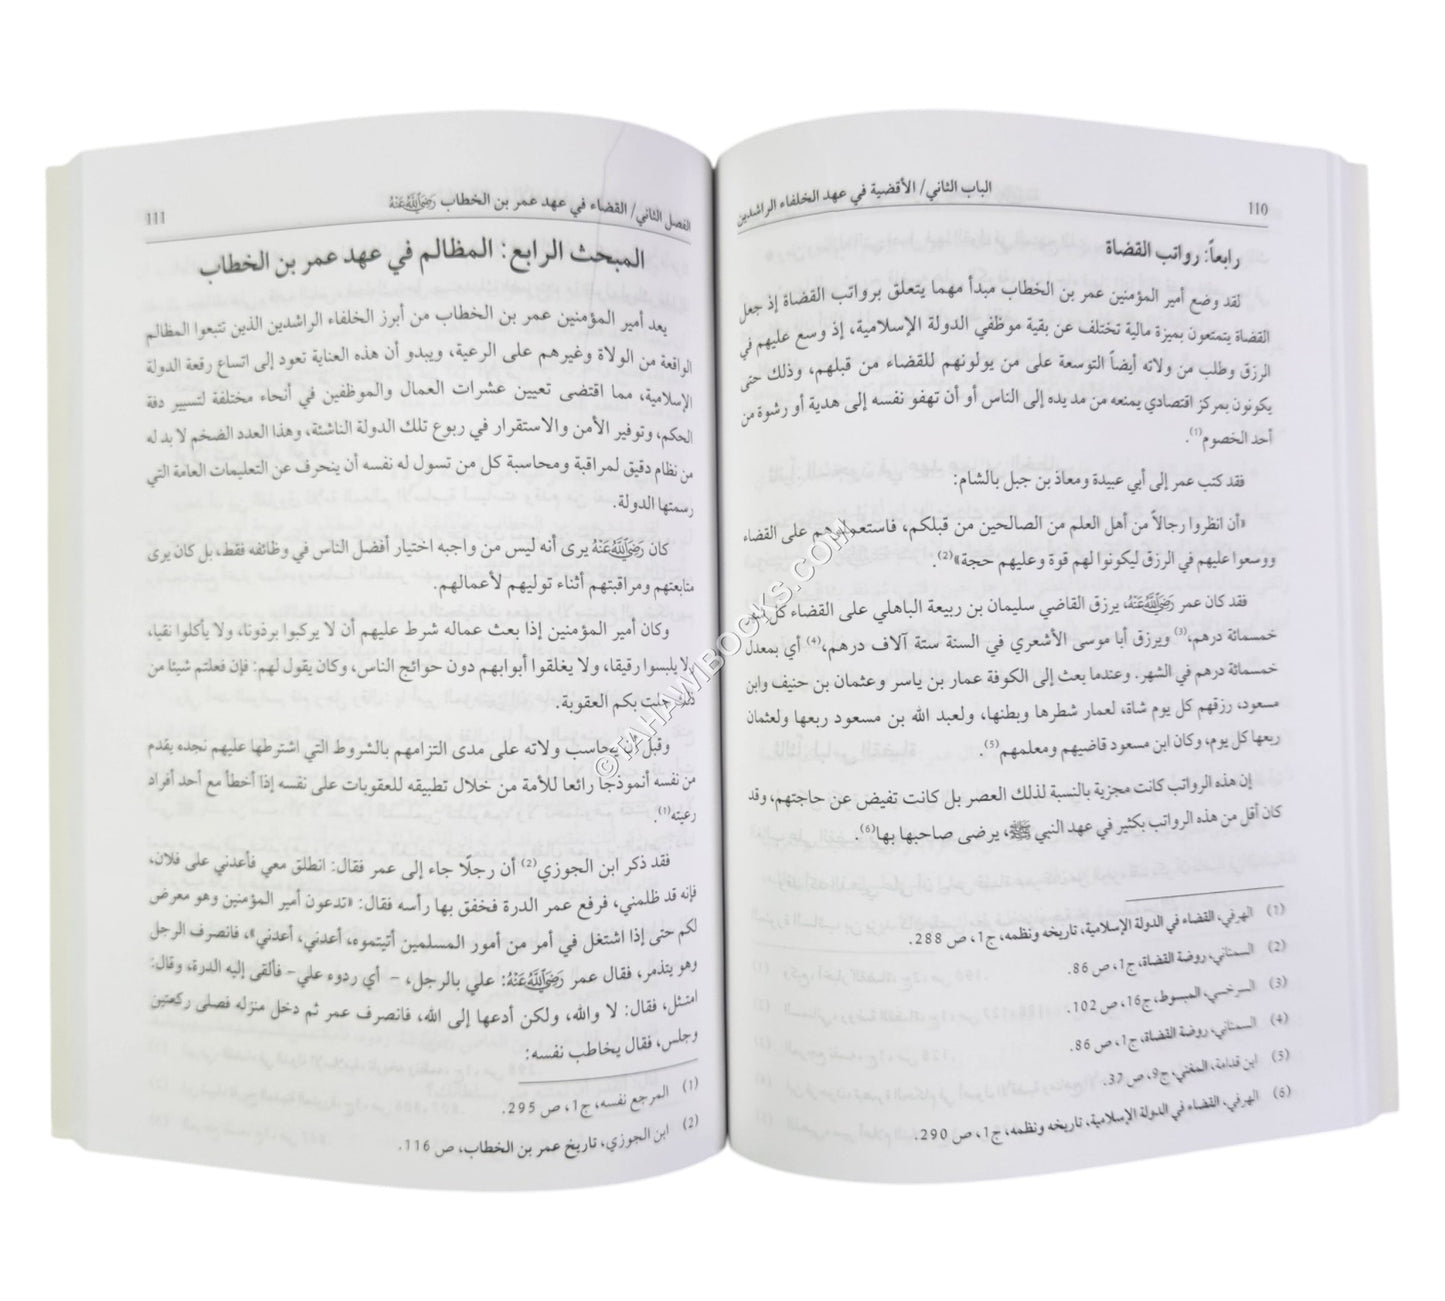 110
الباب الثاني/ الأقضية في عهد الخلفاء الراشدين
رابعاً: رواتب القضاة
لقد وضع أمير المؤمنين عمر بن الخطاب مبدأ مهما يتعلق برواتب القضاة إذ جعل
القضاة يتمتعون بميزة مالية تختلف عن بقية موظفي الدولة الإسلامية، إذ وسع عليهم في
الرزق وطلب من ولاته أيضاً التوسعة على من يولونهم للقضاء من قبلهم، وذلك حتى
يكونون بمركز اقتصادي يمنعه من مد يده إلى الناس أو أن تهفو نفسه إلى هدية أو رشوة من
أحد الخصوم(1).
فقد كتب عمر إلى أبي عبيدة ومعاذ بن جبل بالشام:
«أن انظروا رجالاً من أهل العلم من الصالحين من قبلكم، فاستعملوهم على القضاء
ووسعوا عليهم في الرزق ليكونوا لهم قوة وعليهم حجة»(2).
فقد كان عمر رَضِيَاللَّهُعَنْهُ، يرزق القاضي سليمان بن ربيعة الباهلي على القضاء كل
خمسمائة درهم،(3) ويرزق أبا موسى الأشعري في السنة ستة آلاف درهم،(4) أي بمعدل
خمسمائة درهم في الشهر. وعندما بعث إلى الكوفة عمار بن ياسر وعثمان بن حنيف وابن
مسعود، رزقهم كل يوم شاة، لعمار شطرها وبطنها، ولعبد الله بن مسعود ربعها ولعثمان
ربعها كل يوم، وكان ابن مسعود قاضيهم ومعلمهم(5).
إن هذه الرواتب كانت مجزية بالنسبة لذلك العصر بل كانت تفيض عن حاجتهم، وقد
كان أقل من هذه الرواتب بكثير في عهد النبي ﷺ، يرضى صاحبها بها(6).
(1) الهرفي، القضاء في الدولة الإسلامية، تاريخه ونظمه، ج1، ص 288.
(2) السمناني، روضة القضاة، ج1، ص 86.
(3) السرخسي، المبسوط، ج16، ص 102.
(4) السمناني، روضة القضاة، ج1، ص 86.
(5) ابن قدامة، المغني، ج9، ص 37.
(6) الهرفي، القضاء في الدولة الإسلامية، تاريخه ونظمه، ج1، ص 290.
الفصل الثاني/ القضاء في عهد عمر بن الخطاب رَضِيَاللَّهُعَنْهُ
111
المبحث الرابع: المظالم في عهد عمر بن الخطاب
يعد أمير المؤمنين عمر بن الخطاب من أبرز الخلفاء الراشدين الذين تتبعوا المظالم
الواقعة من الولاة وغيرهم على الرعية، ويبدو أن هذه العناية تعود إلى اتساع رقعة الدولة
الإسلامية، مما اقتضى تعيين عشرات العمال والموظفين في أنحاء مختلفة لتسيير دفة
الحكم، وتوفير الأمن والاستقرار في ربوع تلك الدولة الناشئة، وهذا العدد الضخم لا بد له
من نظام دقيق لمراقبة ومحاسبة كل من تسول له نفسه أن ينحرف عن التعليمات العامة التي
رسمتها الدولة.
كان رَضِيَاللَّهُعَنْهُ يرى أنه ليس من واجبه اختيار أفضل الناس في وظائفه فقط، بل كان يرى
متابعتهم ومراقبتهم أثناء توليهم لأعمالهم.
وكان أمير المؤمنين إذا بعث عماله شرط عليهم أن لا يركبوا برذونا، ولا يأكلوا نقيا،
ولا يلبسوا رقيقا، ولا يغلقوا أبوابهم دون حوائج الناس، وكان يقول لهم: فإن فعلتم شيئا من
ذلك حلت بكم العقوبة.
وقبل أن يحاسب ولاته على مدى التزامهم بالشروط التي اشترطها عليهم نجده يقدم
من نفسه أنموذجا رائعا للأمة من خلال تطبيقه للعقوبات على نفسه إذا أخطأ مع أحد أفراد
رعيته(1).
فقد ذكر ابن الجوزي(2) أن رجلًا جاء إلى عمر فقال: انطلق معي فأعدني على فلان،
فإنه قد ظلمني، فرفع عمر الدرة فخفق بها رأسه فقال: «تدعون أمير المؤمنين وهو معرض
لكم حتى إذا اشتغل في أمر من أمور المسلمين أتيتموه، أعدني، أعدني»، فانصرف الرجل
وهو يتذمر، فقال عمر رَضِيَاللَّهُعَنْهُ: علي بالرجل، - أي ردوه علي- فألقى إليه الدرة، وقال:
امتثل، فقال: لا والله، ولكن أدعها إلى الله، فانصرف عمر ثم دخل منزله فصلى ركعتين
وجلس، فقال يخاطب نفسه:
(1) المرجع نفسه، ج1، ص 295.
(2) ابن الجوزي، تاريخ عمر بن الخطاب، ص 116.
©TAHAWIBOOKS.COM